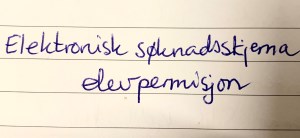 Elektronisk søknadsskjema
elevpermisjon